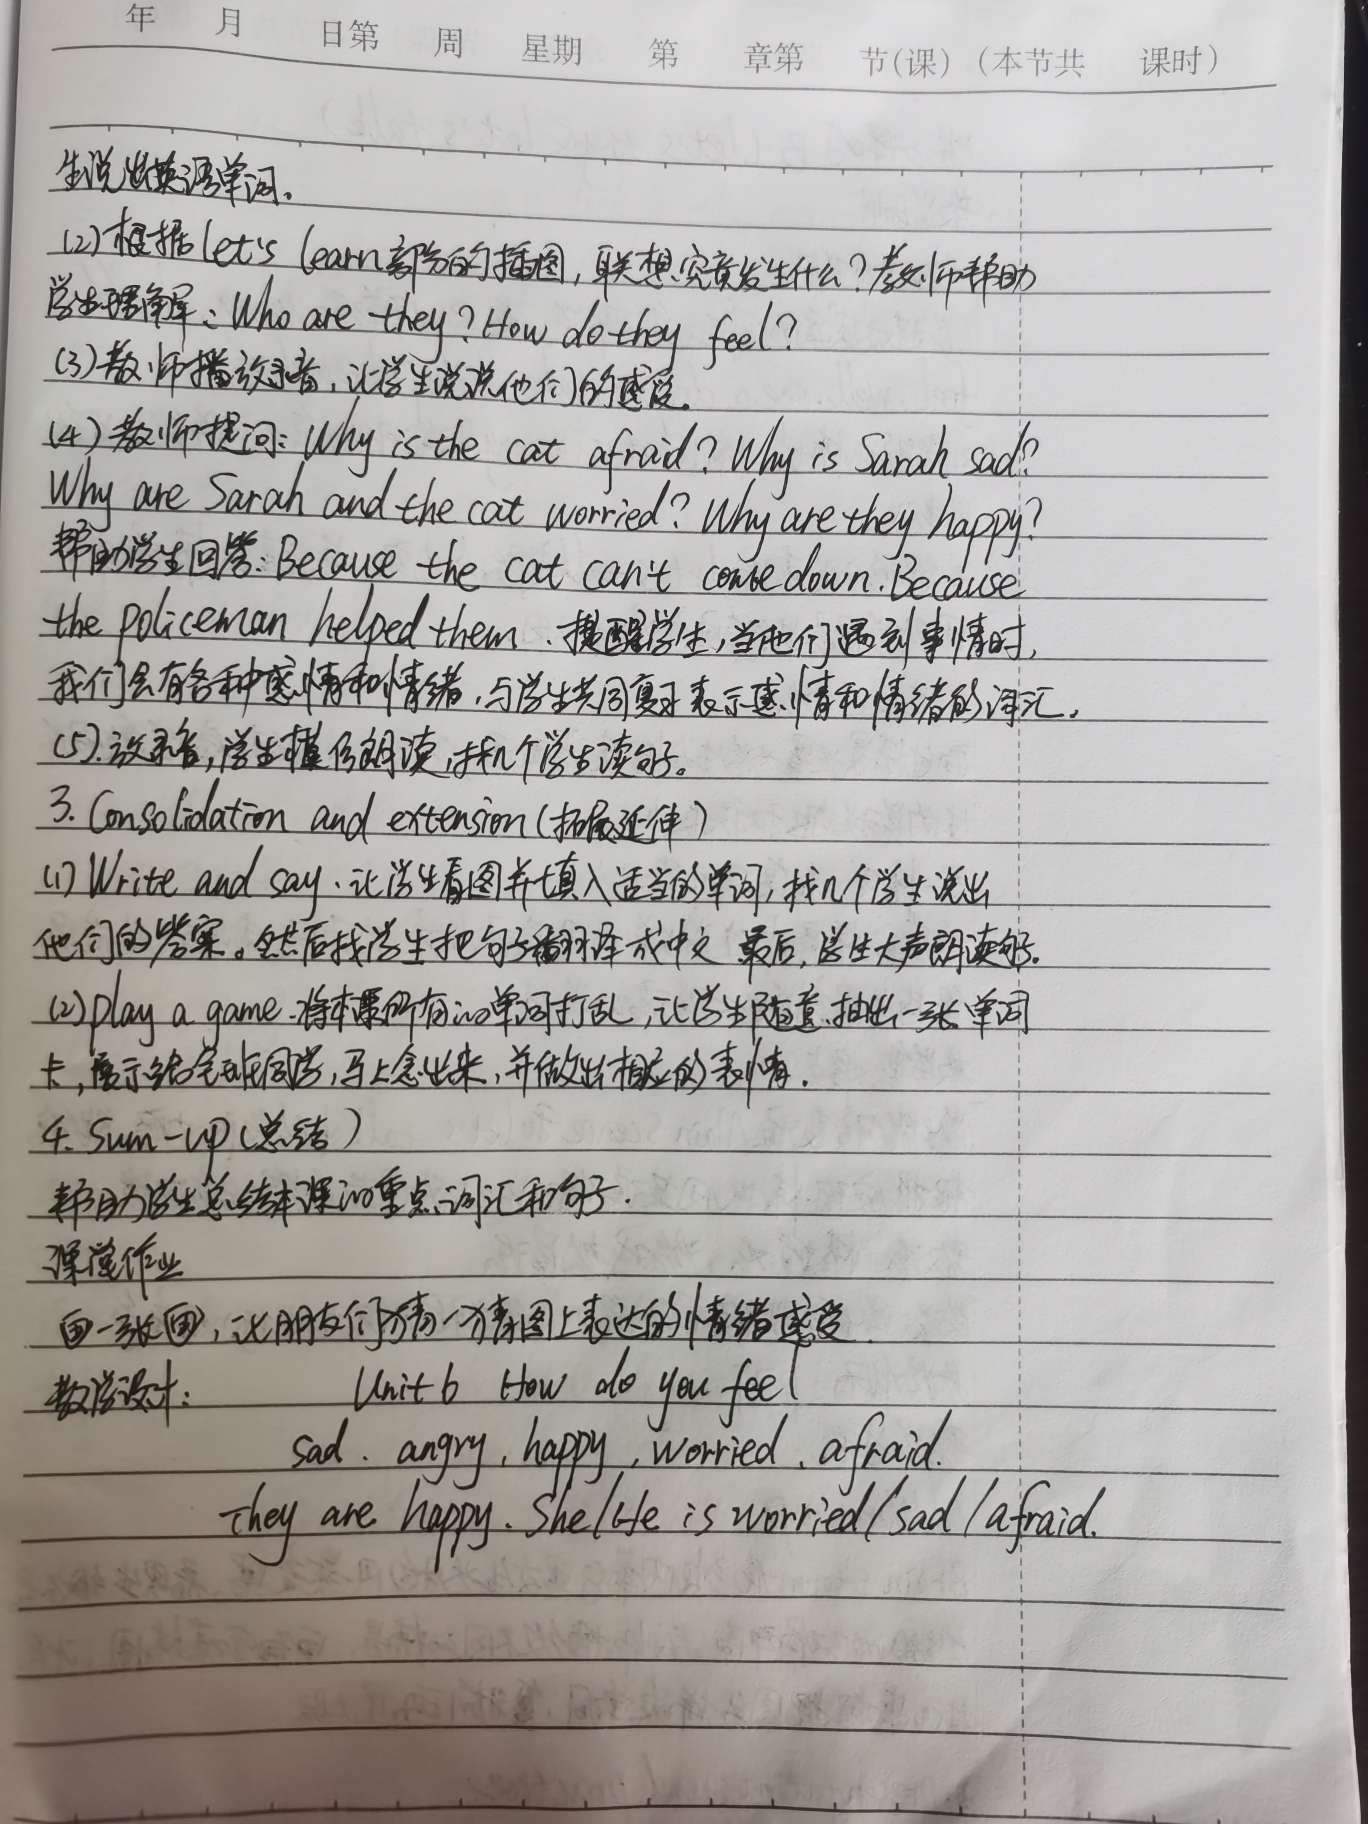 年 月 日第 周 星期 第 章第 节(课)(本节共 课时)
生说出英语单词。
(2)根据let's learn部分的插图,联想究竟发生什么?教师帮助
学生理解:Who are they?How do they feel?
(3)教师播放录音,让学生说说他们的感受。
(4)教师提问:Why is the cat afraid? Why is Sarah sad?
Why are Sarah and the cat worried? Why are they happy?
帮助学生回答:Because the cat can't come down.Because
the policeman helped them.提醒学生,当他们遇到事情时,
我们会有各种感情和情绪,与学生共同复习表示感情和情绪的词汇。
(5).放录音,学生模仿朗读,找几个学生读句子。
3. Consolidation and extension(拓展延伸)
(1)Write and say.让学生看图并填入适当的单词,找几个学生说出
他们的答案。然后找学生把句子翻译成中文 最后,学生大声朗读句子。
(2)play a game.将本课所有的单词打乱,让学生随意抽出一张单词
卡,展示给全班同学,马上念出来,并做出相应的表情.
4. Sum-up(总结)
帮助学生总结本课的重点词汇和句子.
课堂作业
画一张画,让朋友们猜一猜图上表达的情绪感受
教学设计: Unit 6 How do you feel
sad. angry, happy, worried, afraid.
They are happy. She/He is worried/sad/afraid.